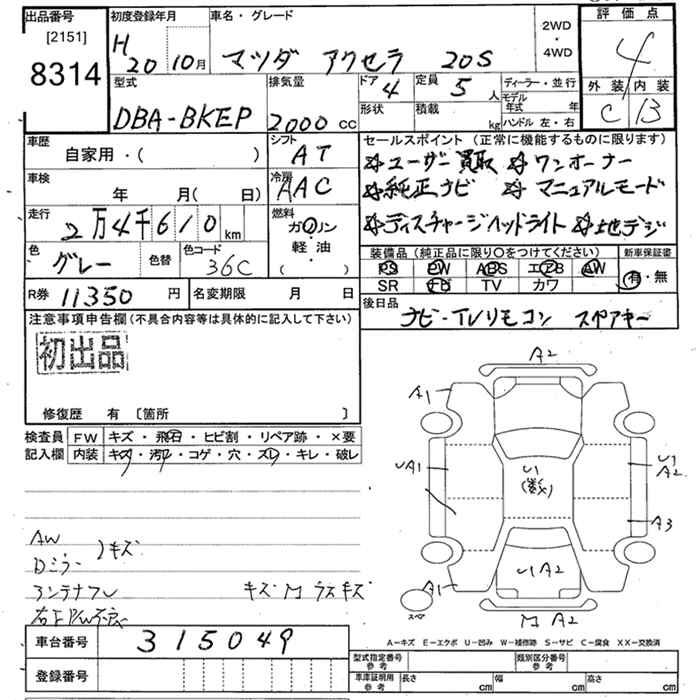 出品番号
[2151]
8314
初度登録年月
H 20 10月
車名・グレード
マツダ アクセラ 20S
2WD
・
4WD
評価点
4
外装 内装
C B
型式
DBA-BKEP
排気量
2000 cc
ドア
4
定員
5 人
形状
積載
kg
ディーラー・並行
モデル年式 年
ハンドル 左・右
車歴
自家用・( )
シフト
AT
車検
年 月( 日)
冷房
AAC
走行
2万4千610 km
燃料
ガソリン
軽・油
( )
色
グレー
色替
色コード
36C
R券 11350 円
名変期限 月 日
セールスポイント (正常に機能するものに限ります)
☆ユーザー買取 ☆ワンオーナー
☆純正ナビ ☆マニュアルモード
☆ディスチャージヘッドライト ☆地デジ
装備品 (純正品に限り〇をつけてください)
新車保証書
PS PW ABS エアB AW
SR ナビ TV カワ
有・無
後日品
ナビ・TVリモコン スペアキー
注意事項申告欄 (不具合内容等は具体的に記入して下さい)
初出品
修復歴 有 〔箇所 〕
検査員
記入欄
FW キズ・飛石・ヒビ割・リペア跡・×要
内装 キズ・汚れ・コゲ・穴・スレ・キレ・破レ
AW
Dミラー
キズ
アンテナナシ
キズ M ラスキズ
A2
A1
UA1
U1
(数)
U1
A2
A3
U1 A2
A1
スペア
M A2
A-キズ E-エクボ U-凹み W-補修跡 S-サビ C-腐食 XX-交換済
車台番号 315049
登録番号
型式指定番号
参考
類別区分番号
参考
車庫証明用
参考
長さ cm 幅 cm 高さ cm